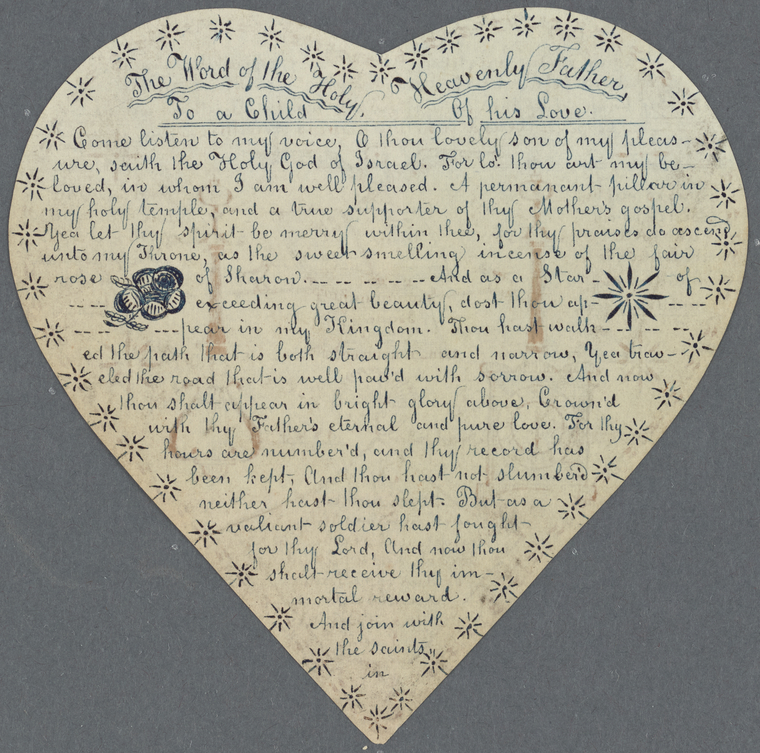 The Word of the Holy Heavenly Father,
To a Child Of his Love.
Come listen to my voice, O thou lovely son of my pleas-
ure, saith the Holy God of Israel. For lo! thou art my be-
loved, in whom I am well pleased. A permanant pillar in
my holy temple, and a true supporter of thy Mother's gospel.
Yea let thy spirit be merry within thee, for thy praises do ascend
unto my Throne, as the sweet smelling incense of the fair
rose of Sharon. And as a Star of
exceeding great beauty, dost thou ap-
pear in my Kingdom. Thou hast walk-
ed the path that is both straight and narrow, Yea trav-
eled the road that is well pav'd with sorrow. And now
thou shalt appear in bright glory above, Crown'd
with thy Father's eternal and pure love. For thy
hours are number'd, and thy record has
been kept, And thou hast not slumberd
neither hast thou slept. But as a
valiant soldier hast fought
for thy Lord, And now thou
shalt receive thy im-
mortal reward.
And join with
the saints
in